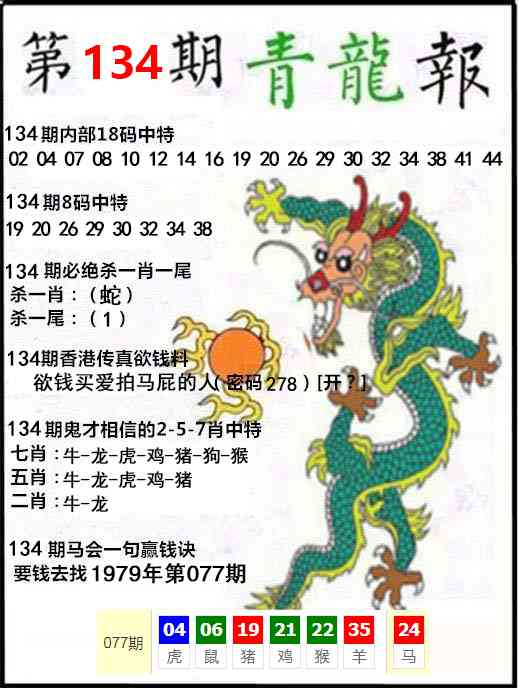 第134期青龍報
134期内部18码中特
02 04 07 08 10 12 14 16 19 20 26 29 30 32 34 38 41 44
134期8码中特
19 20 26 29 30 32 34 38
134期必绝杀一肖一尾
杀一肖：（蛇）
杀一尾：（1）
134期香港传真欲钱料
欲钱买爱拍马屁的人（密码278）[开？]
134期鬼才相信的2-5-7肖中特
七肖：牛-龙-虎-鸡-猪-狗-猴
五肖：牛-龙-虎-鸡-猪
二肖：牛-龙
134期马会一句赢钱诀
要钱去找1979年第077期
077期 04 06 19 21 22 35 24
虎 鼠 猪 鸡 猴 羊 马